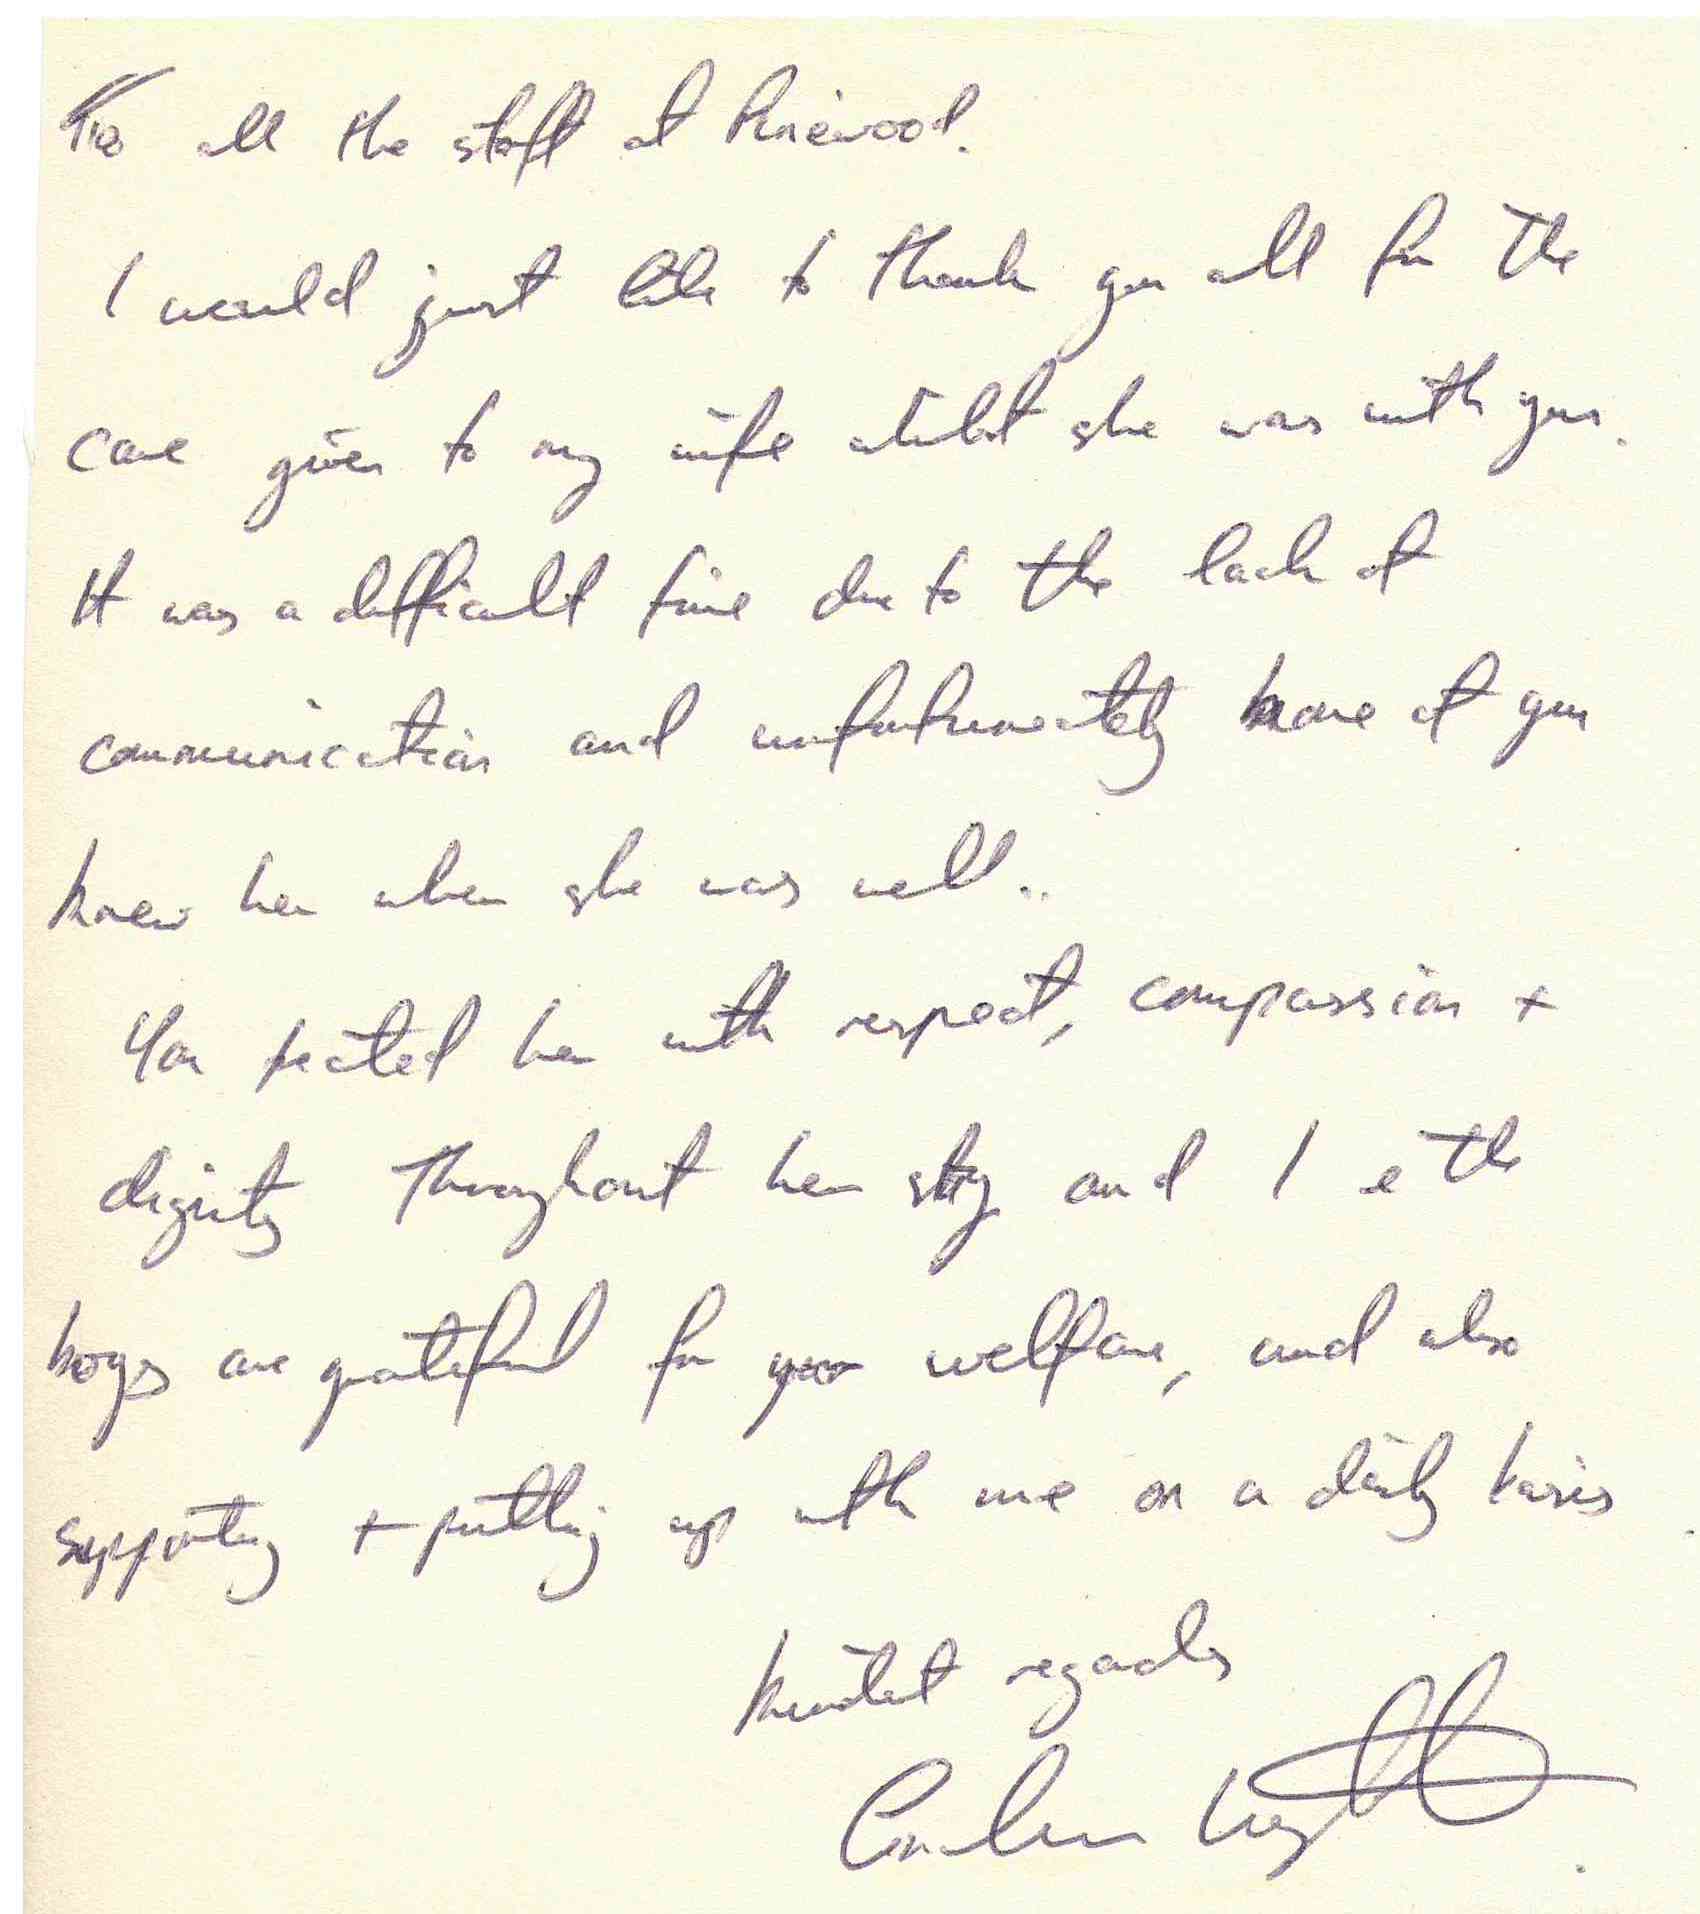 To all the staff at Pinewood.
I would just like to thank you all for the
care given to my wife whilst she was with you.
It was a difficult time due to the lack of
communication and unfortunately none of you
knew her when she was well..
You treated her with respect, compassion +
dignity throughout her stay and I & the
boys are grateful for your welfare, and also
supporting + putting up with me on a daily basis
kindest regards